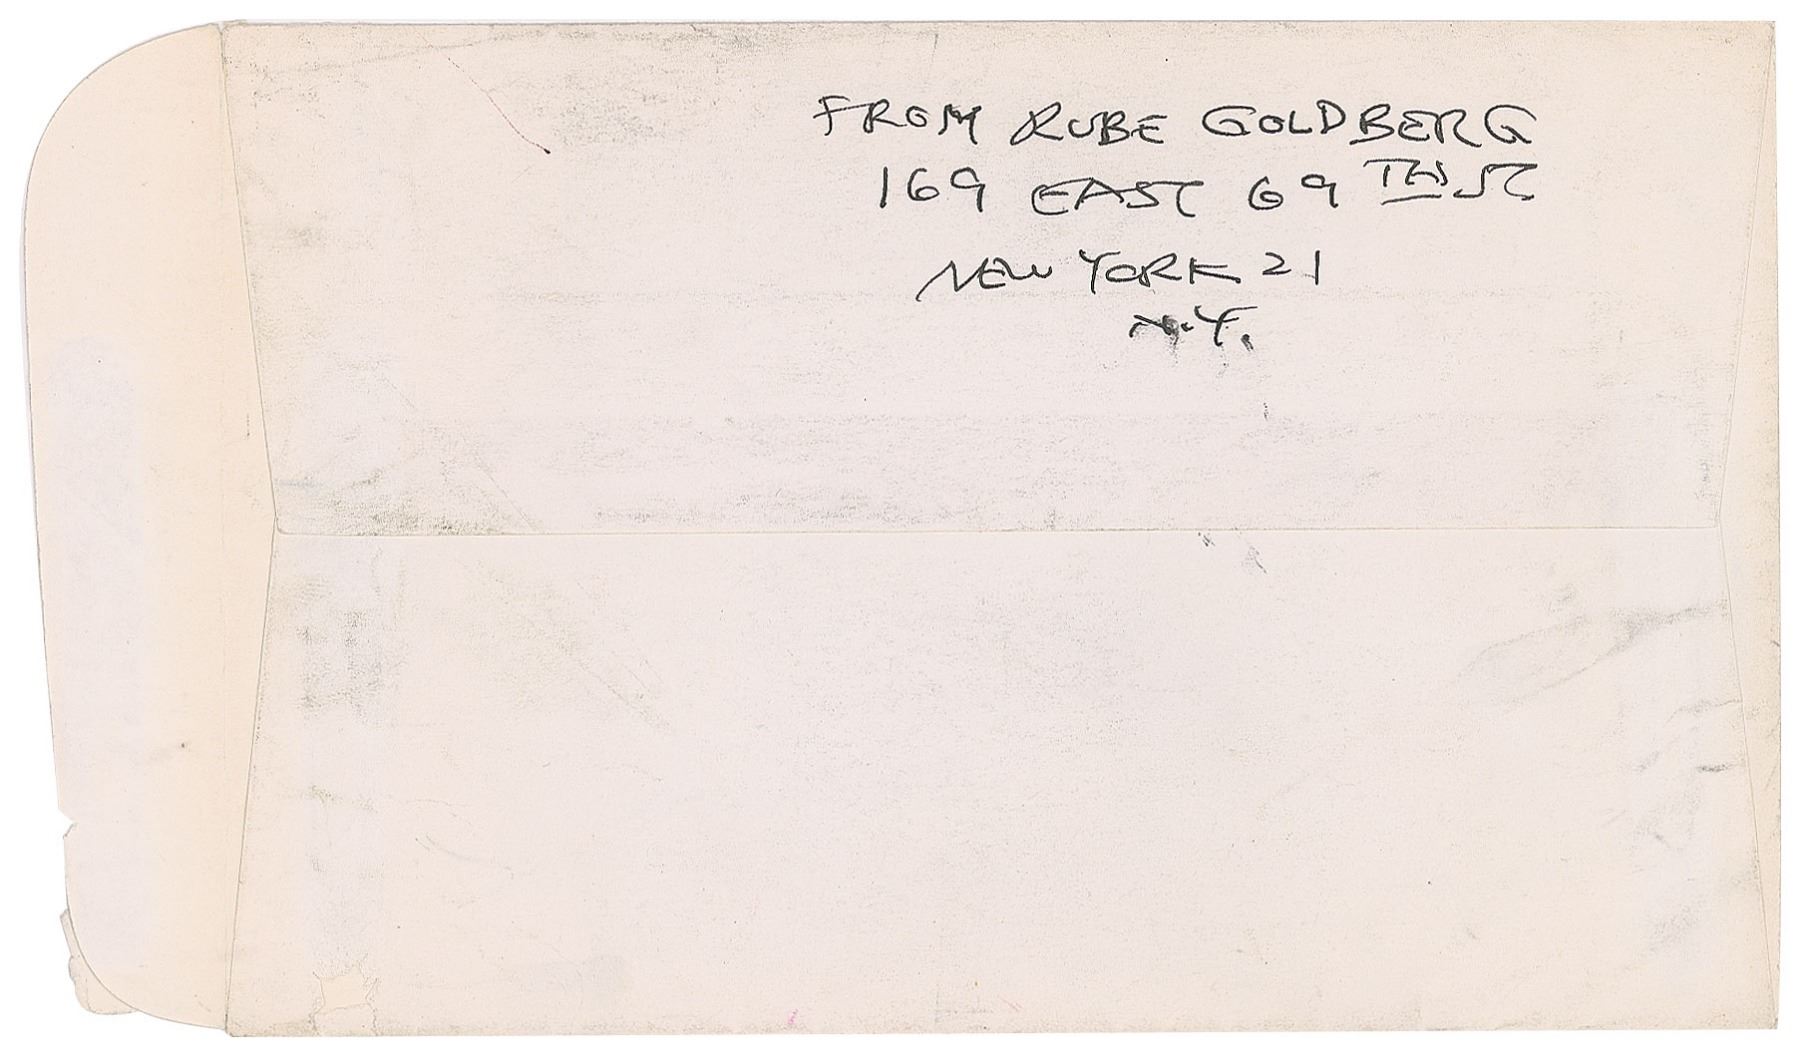 FROM RUBE GOLDBERG
169 EAST 69TH ST
NEW YORK 21
N.Y.